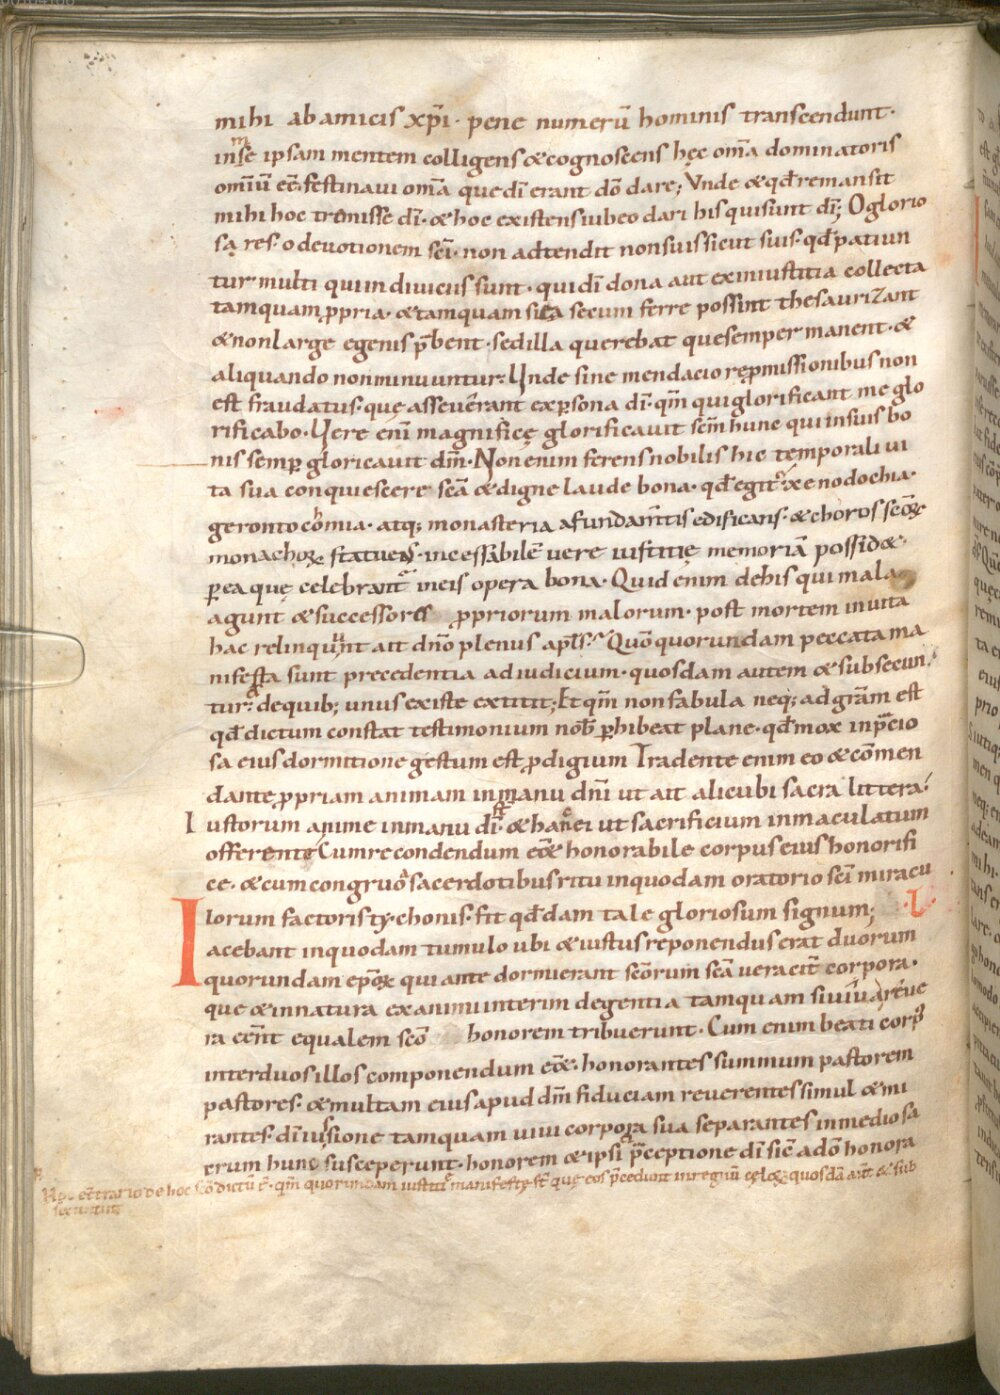 mihi ab amicis xp̄i · pene numerū hominis transcendunt ·
inmse ipsam mentem colligens & cognoscens hęc om̄a dominatoris
omiū eē · festinavi om̄a que dī erant dō dare; Vnde & qđ remansit
mihi hoc tremisse dī · & hoc existens iubeo dari his qui sunt dī; O glorio
są res · o devotionem scī · non adtendit non suis sicut suis · qđ patiun
tur multi qui in diviciis sunt · qui dī dona aut ex iniustitia collecta
tamquam ꝓpria · & tamquam sica secum ferre possint thesaurizant
& non large egenis p̄bent · sed illa querebat que semper manent · &
aliquando non minuuntur: Unde sine mendacio repmissionibus non
est fraudatus · que asseverant ex ꝑsona dī · qm̄ qui glorificant me glo
rificabo · Vere enī magnifice glorificavit scm̄ hunc qui in suis bo
nis semꝑ gloricavit dm̄ · Non enim ferens nobilis hic temporali ui
ta sua conquiescere scā & digne laude bona · qđ egit xenodochia ·
gerontocomia · atq; monasteria a fundam̄tis edificans · & choros scōꝝ
monachoꝝ statuens · incessabilē vere iustitię memoriā possid& ·
ꝑ ea quę celebrant in eis opera bona · Quid enim de his qui mala
agunt & successores ꝓpriorum malorum · post mortem in uita
hac relinquunt ait dn̄o plenus apl̄s · Quō quorundam peccata ma
nifesta sunt precedentia ad iudicium · quosdam autem & subsecun
tur · de quib; unus existe extitit; Et qm̄ non fabula neq; ad grām est
qđ dictum constat testimonium nob̄ ꝑhibeat plane · qđ mox in p̄cio
sa eius dormitione gestum est ꝓdigium Tradente enim eo & cōmen
dante ꝓpriam animam in manu dn̄i ut ait alicubi sacra littera:
Iustorum anime in manu dī st̄ · & hanc ei ut sacrificium inmaculatum
offerente Cum recondendum eēt honorabile corpus eius honorifi
ce · & cum congruo sacerdotibus ritu in quodam oratorio scī miracu
lorum factoris tychonis · fit qđdam tale gloriosum signum;
Iacebant in quodam tumulo ubi & iustus reponendus erat duorum
quorundam epōꝝ qui ante dormierant scōrum scā veracit̄ corpora ·
que & in natura exanimi interim degentia tamquam si
ra cent̄ equalem scō honorem tribuerunt · Cum enim beati corp
inter duos illos componendum eēt · honorantes summum pastorem
pastores · & multam eius apud dm̄ fiduciam reverentes simul & mi
rantes · dī iussione tamquam vivi corpora sua separantes in medio sa
crum hunc susceperunt · honorem & ipsi p̄ceptione dī sic̄ a dō honora
e contrario de hoc scō dictū ē · qm̄ quorundam iustitię manifestę st̄ quę eos p̄cedunt in regnū cęloꝝ quosdā aūt & sub
secuntur